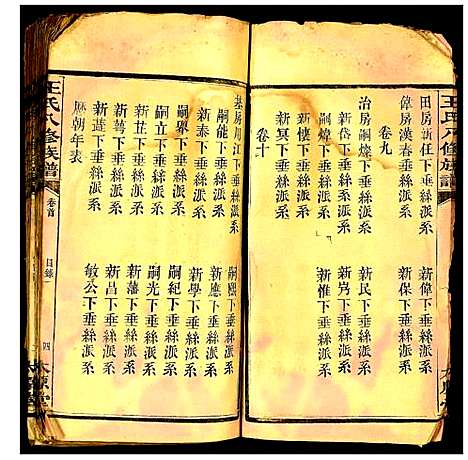 王氏八修族譜
田房新任下垂絲派系 新偉下垂絲派系
偉房漢春下垂絲派系 新保下垂絲派系
卷九
治房嗣燦下垂絲派系 新民下垂絲派系
嗣煒下垂絲派系 新㞦下垂絲派系
新懷下垂絲派系 新惟下垂絲派系
新冥下垂絲派系
卷十
基房周江下垂絲派系 嗣熙下垂絲派系
嗣能下垂絲派系 新應下垂絲派系
新泰下垂絲派系 新學下垂絲派系
嗣舉下垂絲派系 嗣紀下垂絲派系
嗣立下垂絲派系 嗣光下垂絲派系
新萼下垂絲派系 新藩下垂絲派系
新莛下垂絲派系 新昌下垂絲派系
歷朝年表 敏公下垂絲派系
王氏八修族譜 卷首 目錄 四 太原堂